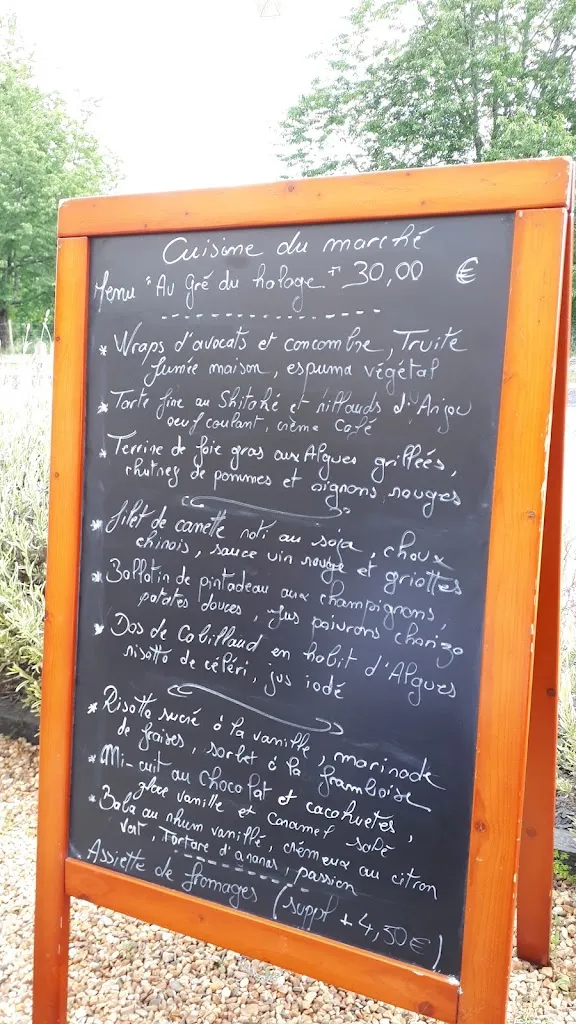 Cuisine du marché
Menu "Au Gré du halage" 30,00 €
* Wraps d'avocats et concombre, Truite
fumée maison, espuma végétal
* Tarte fine au Shitaké et rillauds d'Anjou
oeuf coulant, crème café
* Terrine de foie gras aux Algues grillées,
chutney de pommes et oignons rouges
* Filet de canette roti au soja, choux
chinois, sauce vin rouge et griottes
* Ballotin de pintadeau aux champignons,
patates douces, jus poivrons chorizo
* Dos de Cabillaud en habit d'Algues
risotto de céléri, jus iodé
* Risotto sucré à la vanille, marinade
de fraises, sorbet à la framboise
* Mi-cuit au chocolat et cacahuetes,
glace vanille et caramel salé
* Baba au rhum vanillé, crémeux au citron
vert, Tartare d'ananas, passion
Assiette de fromages (suppl + 4,50€)